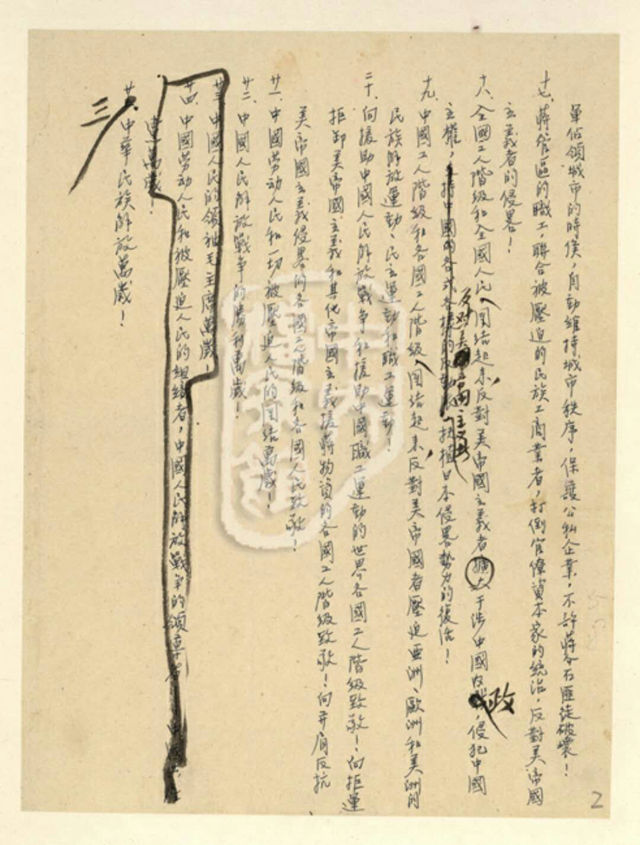 軍佔領城市的時候，自動維持城市秩序，保護公私企業，不許蔣介石匪徒破壞！
十七、蔣管區的職工，聯合被壓迫的民族工商業者，打倒官僚資本家的統治，反對美帝國
主義者的侵畧！
十八、全國工人階級和全國人民，團結起來，反對美帝國主義者擴大干涉中國內政，侵犯中國
主權，反對美帝國主義扶植日本侵畧勢力的復活！
十九、中國工人階級和各國工人階級，團結起來，反對美帝國者壓迫亞洲、歐洲和美洲的
民族解放運動、民主運動和職工運動！
二十、向援助中國人民解放戰爭和援助中國職工運動的世界各國工人階級致敬！向拒運
拒卸美帝國主義和其他帝國主義援蔣物資的各國工人階級致敬！向并肩反抗
美帝國主義侵畧的各國工人階級和各國人民致敬！
廿一、中國勞動人民和一切被壓迫人民的團結萬歲！
廿二、中國人民解放戰爭的勝利萬歲！
廿三、中國人民的領袖毛主席萬歲！
廿四、中國勞動人民和被壓迫人民的組織者，中國人民解放戰爭的領導者
萬歲！
中華民族解放萬歲！
三
2